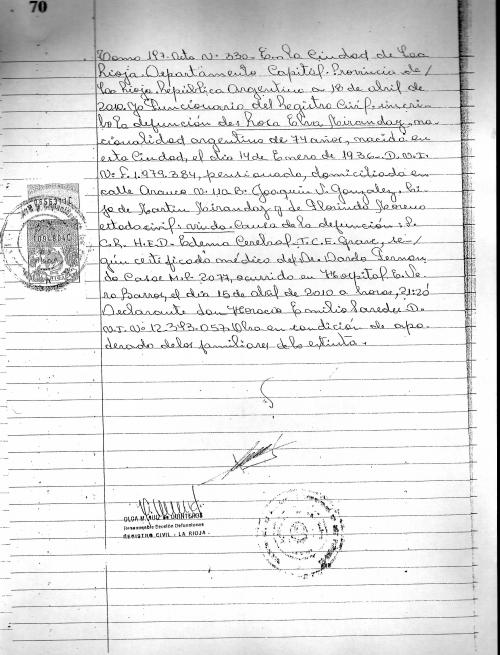 70
Tomo 187. Acta Nº 330. En la Ciudad de La
Rioja. Departamento Capital. Provincia de /
La Rioja República Argentina a 18 de abril de
2010. Yo Funcionario del Registro Civil, inscri-
bo la defunción de: Rosa Elva Miranday, na-
cionalidad argentina de 74 años, nacida en
esta Ciudad, el día 14 de Enero de 1936. D.N.I.
Nº F. 1.979.384, pensionada, domiciliada en
calle Arauco Nº 110 Bº Joaquín V. Gonzalez. hi-
ja de Martin Miranday y de Florinda Moreno
estado civil: viuda. Causa de la defunción: P.
C.R. H.E.D. Edema Cerebral T.C.E. Grave, se-
gún certificado médico del Dr. Dardo Fernan-
do Casas M.P. 2077, ocurrido en Hospital E. Ve-
ra Barros, el día 16 de abril de 2010 a horas, 21:20
Declarante don Horacio Emilio Paredes D.
N.I. Nº 12.393.057. Obra en condición de apo-
derado de los familiares de la extinta.
OLGA M. RUIZ de QUINTEROS
Responsable Sección Defunciones
REGISTRO CIVIL - LA RIOJA -